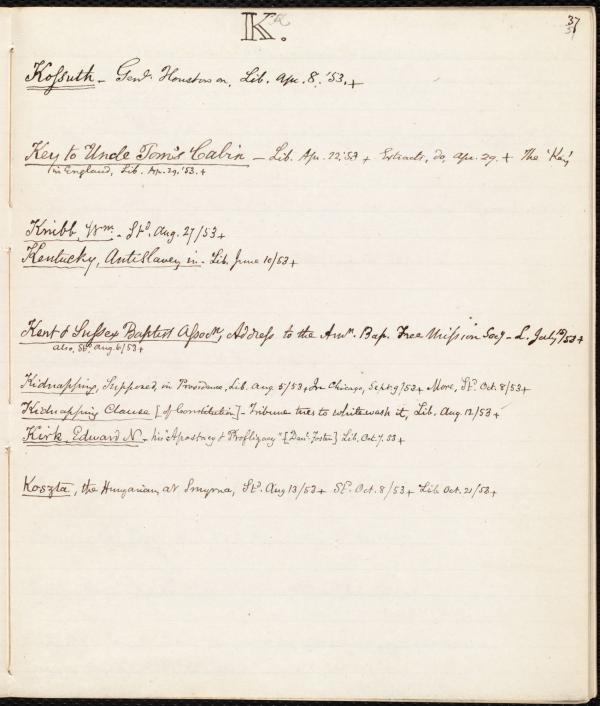 K.
37
Kossuth - Genl. Houston on, Lib. Apr. 8, '53.+
Key to Uncle Tom's Cabin - Lib. Apr. 22, '53 + Extracts, do, Apr. 29. + The 'Key'
in England, Lib. Apr. 29, '53. +
Knibb, Wm. - Std. Aug. 27/53+
Kentucky, Antislavery in - Lib. June 10/53+
Kent & Sussex Baptist Assocn, Address to the Amn. Bap. Free Mission Socy - L. July /53+
also, Std. Aug. 6/53+
Kidnapping, Supposed, in Providence, Lib. Aug. 5/53, In Chicago, Sept. 9/53+ More, Std. Oct. 8/53+
Kidnapping Clause [of Constitution] - Tribune tries to whitewash it, Lib. Aug. 12/53+
Kirk, Edward N. - his "Apostacy & Profligacy" [Danl. Foster] Lib. Oct. 7. 53+
Koszta, the Hungarian, at Smyrna, Std. Aug 13/53+ Std. Oct. 8/53+ Lib. Oct. 21/53+